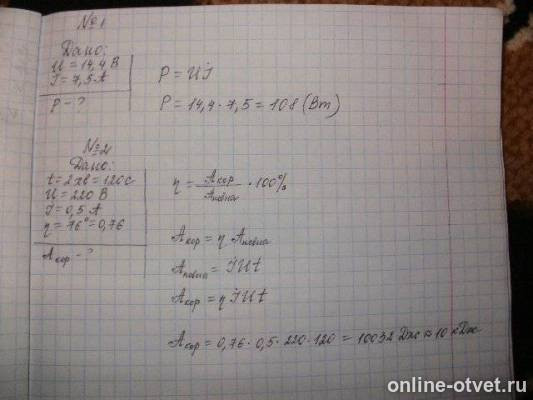 №1
Дано:
U = 14,4 В
I = 7,5 А
P - ?
P = UI
P = 14,4 · 7,5 = 108 (Вт)
№2
Дано:
t = 2хв = 120с
U = 220 В
I = 0,5 А
η = 76° = 0,76
Aкор - ?
η = Aкор / Aповна · 100%
Aкор = η Aповна
Aповна = IUt
Aкор = η IUt
Aкор = 0,76 · 0,5 · 220 · 120 = 10032 Дж ≈ 10 кДж
online-otvet.ru